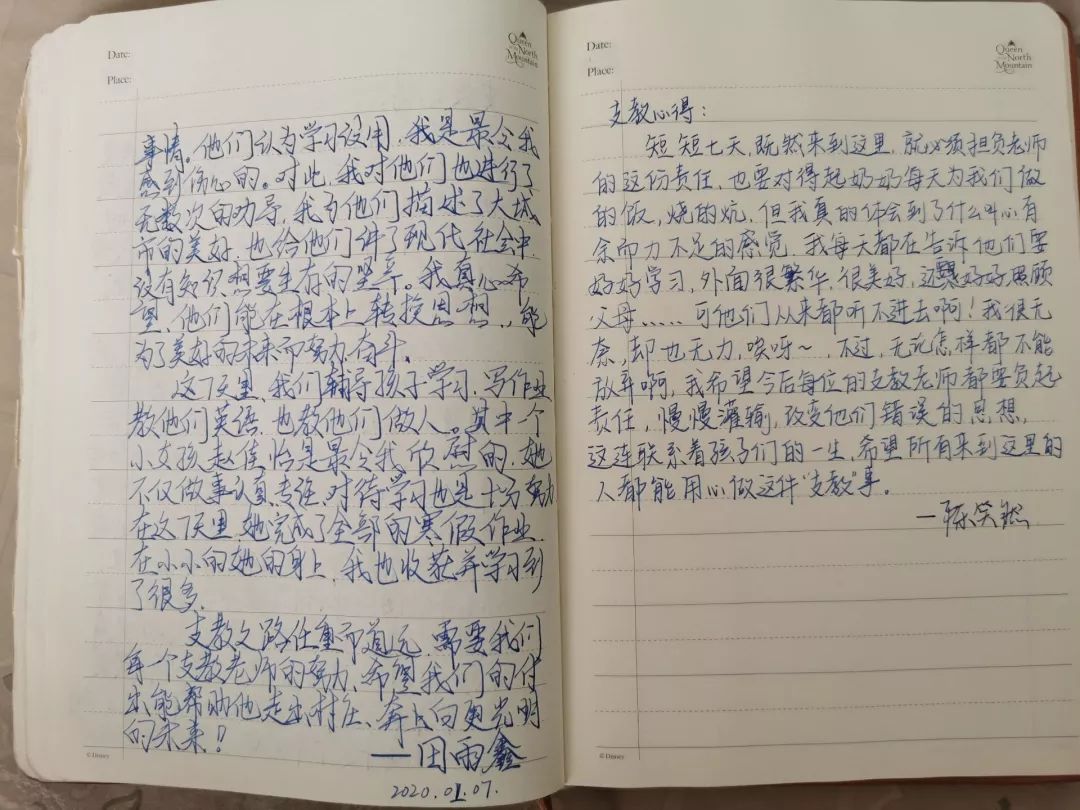 Date:
Place:
Queen
of the
North
Mountain
事情。他们认为学习没用,我是最令我
感到伤心的。对此,我对他们也进行了
无数次的劝导,我为他们描述了大城
市的美好,也给他们讲了现代社会中,
没有知识想要生存的艰辛。我真心希
望,他们能在根本上转换思想,能
为了美好的未来而努力奋斗。
这7天里,我们辅导孩子学习,写作业
教他们英语,也教他们做人。其中一个
小女孩赵佳怡是最令我欣慰的,她
不仅做事认真,专注,对待学习也是十分努力
在这7天里,她完成了全部的寒假作业,
在小小的她的身上,我也收获并学习到
了很多,
支教之路任重而道远,需要我们
每一个支教老师的努力,希望我们的付
出能帮助他走出村庄、奔向更光明
的未来!
——田雨鑫
2020.01.07.
©Disney
Date:
Place:
Queen
of the
North
Mountain
支教心得:
短短七天,既然来到这里,就必须担负老师
的这份责任,也要对得起奶奶每天为我们做
的饭,烧的炕,但我真的体会到了什么叫心有
余而力不足的感觉,我每天都在告诉他们要
好好学习,外面很繁华,很美好,还要好好照顾
父母……可他们从来都听不进去啊!我很无
奈,却也无力,唉呀~,不过,无论怎样都不能
放弃啊,我希望今后每位的支教老师都要负起
责任,慢慢灌输,改变他们错误的思想,
这连联系着孩子们的一生,希望所有来到这里的
人都能用心做这件"支教"事。
—陈笑然
©Disney